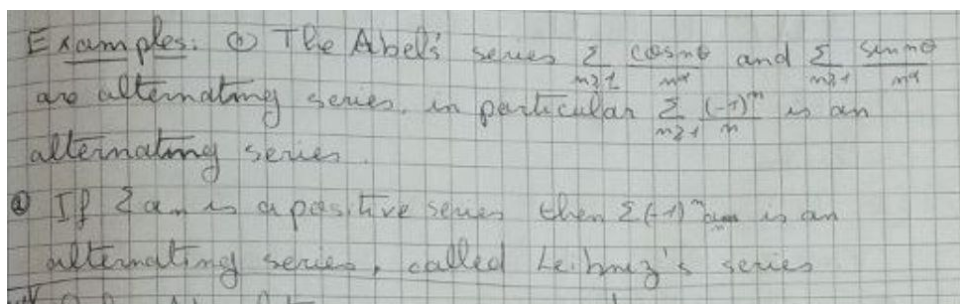 Examples: ① The Abel's series Σ_{n≥1} cosnθ/n^α and Σ_{n≥1} sinnθ/n^α
are alternating series, in particular Σ_{n≥1} (-1)^n/n is an
alternating series.
② If Σa_n is a positive series then Σ(-1)^n a_n is an
alternating series, called Leibniz's series